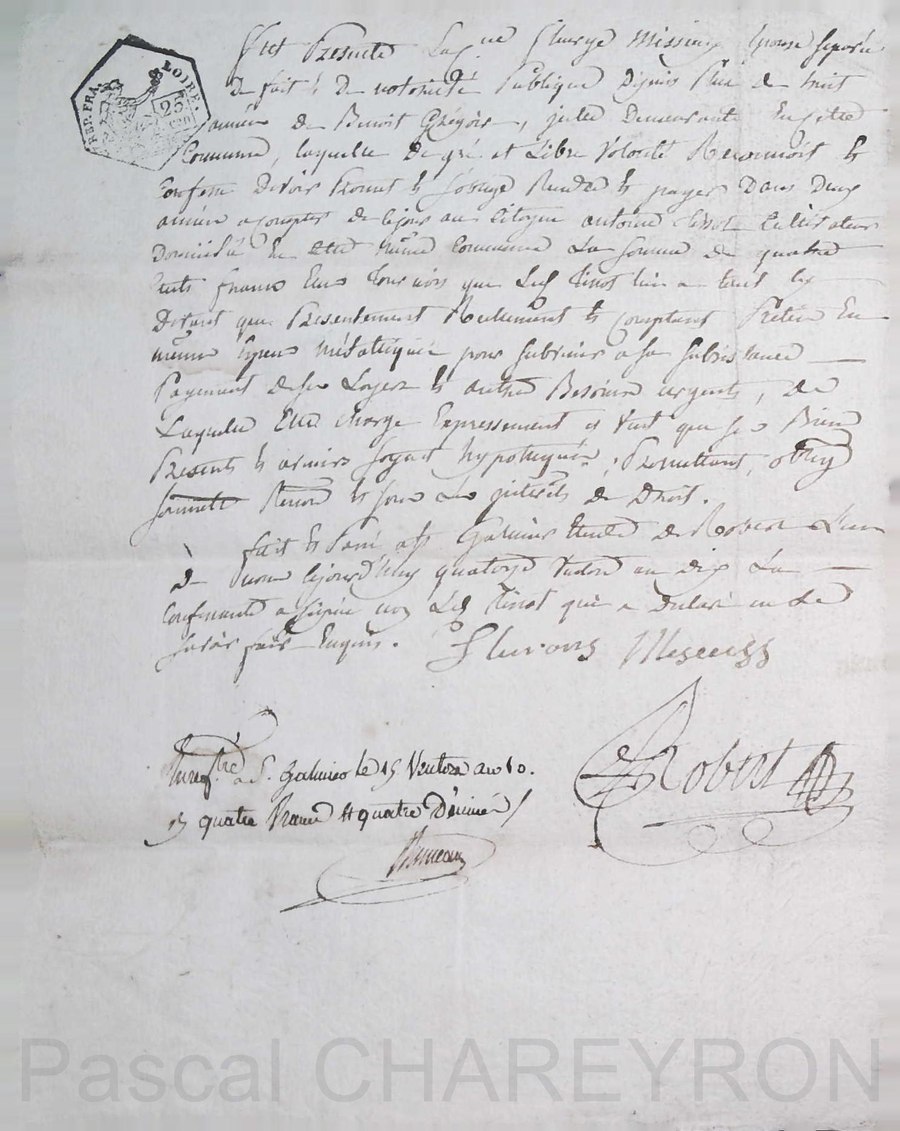 REP. FRA. LOIRE. 25
Est Présente La Cne fleurye Missieu Epouse séparée
de fait & de notoriété Publique Depuis Plus de huit
année de Benoit Grégoire, Demeurante En Cette
Commune, laquelle De gré et Libre Volonté Reconnoit &
Confesse Devoir Promet & s'oblige Rendre & payer Dans Deux
année a Compter de Cejour au Citoyen antoine Cultivateur
Domicilié En Cette même Commune La somme de quatre
Cents francs que Led. a tout
Présentement Réellement & Comptant En
Espèces Métalliques pour Subvenir a sa Subsistance
Payement de ses Loyers & autres Besoins urgents, de
Laquelle Elle Charge Expressement et Veut que ses Biens
Présents & avenirs soyent hypothéqués ; Promettant, oblig
Soumett Renon & sous les intérêts de Droit.
fait & Passé a St Galmier Etude de Robert L'un
de Nous Cejourd'huy quatorze Ventose an dix La
Confessante a signé non Led. qui a Déclaré ne le
Savoir faire Enquis. Meseuss
Enregtré a St. Galmier le 15 Ventose an 10.
quatre francs & quatre Décimes
Robert
Pascal CHAREYRON